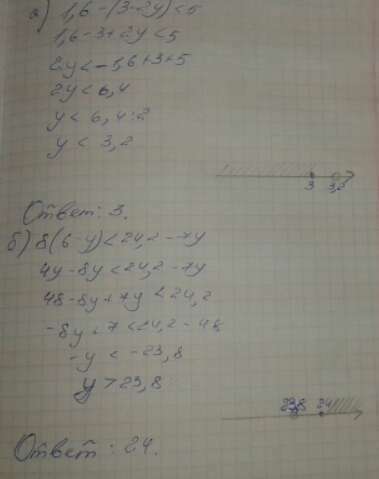 а) 1,6-(3-2y)<5
1,6-3+2y<5
2y<-1,6+3+5
2y<6,4
y < 6,4:2
y < 3,2
3 3,2
Ответ: 3.
б) 8(6-y)<24,2-7y
4y-8y<24,2-7y
48-8y+7y<24,2
-8y+7<24,2-48
-y < -23,8
y > 23,8
23,8 24
Ответ: 24.